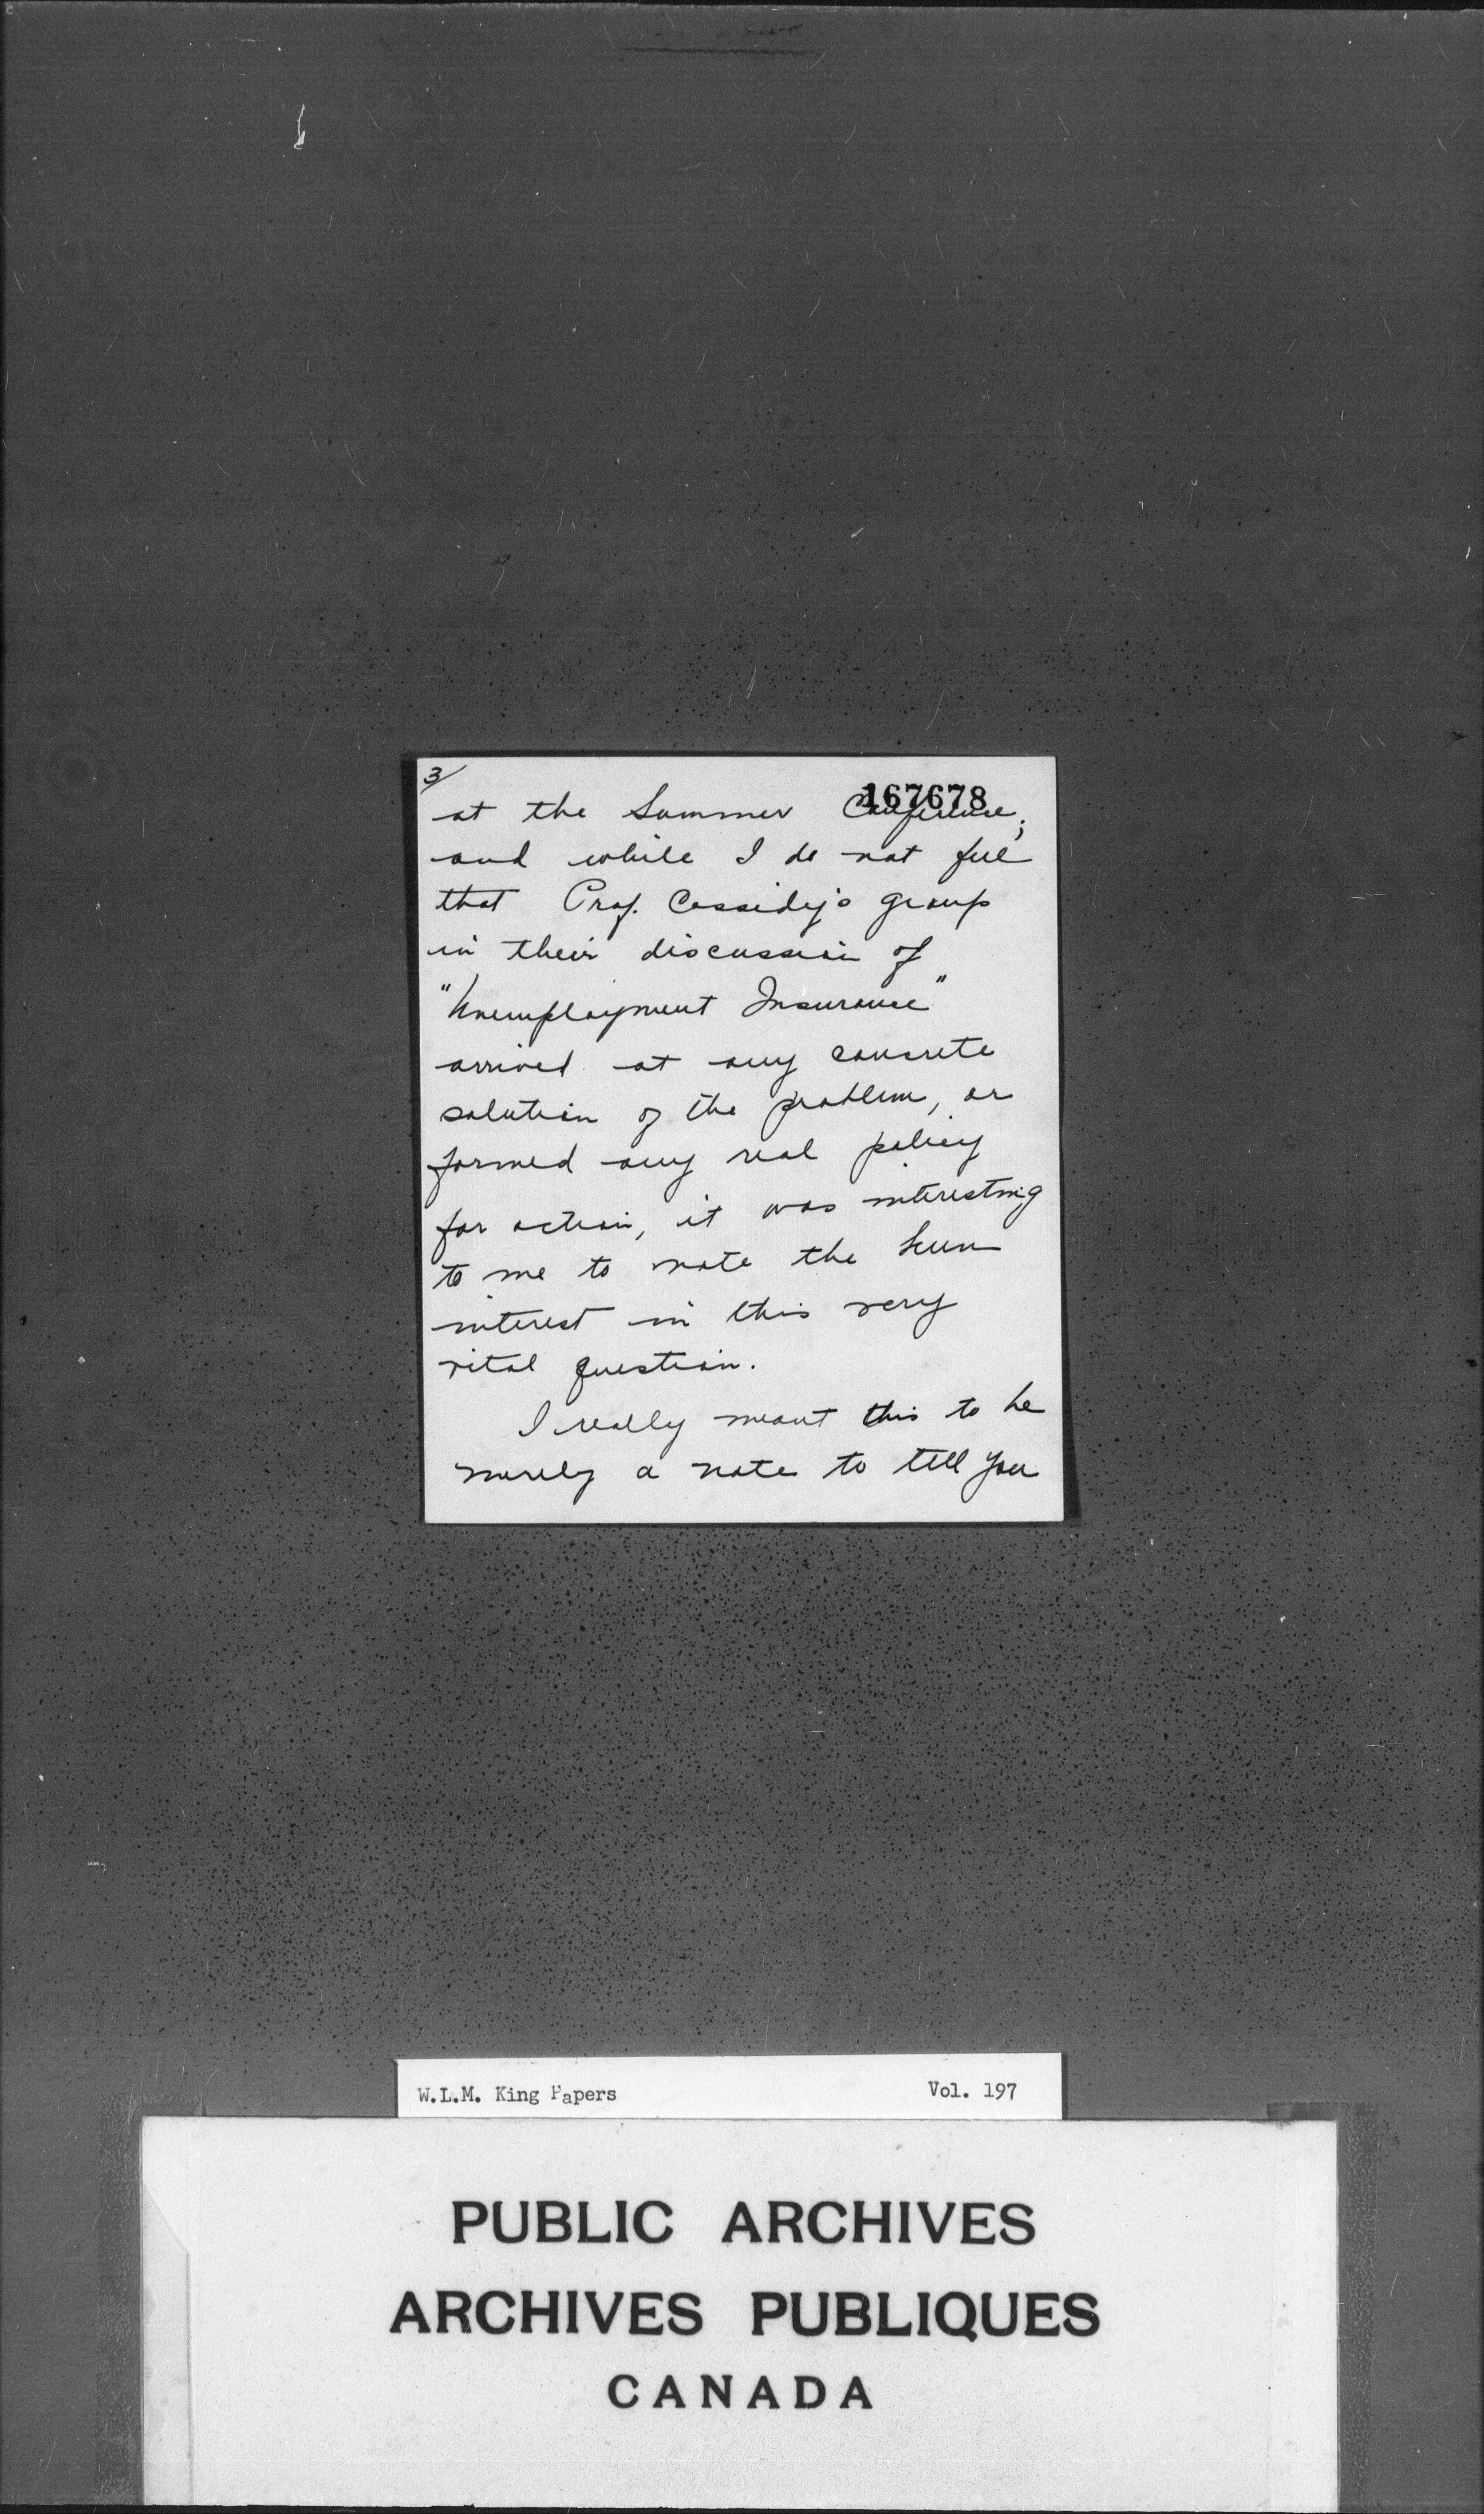 3/
167678
at the Summer Conference;
and while I do not feel
that Prof. Cassidy's group
in their discussion of
"Unemployment Insurance"
arrived at any concrete
solution of the problem, or
formed any real policy
for action, it was interesting
to me to note the keen
interest in this very
vital question.
I really meant this to be
merely a note to tell you
W.L.M. King Papers Vol. 197
PUBLIC ARCHIVES
ARCHIVES PUBLIQUES
CANADA